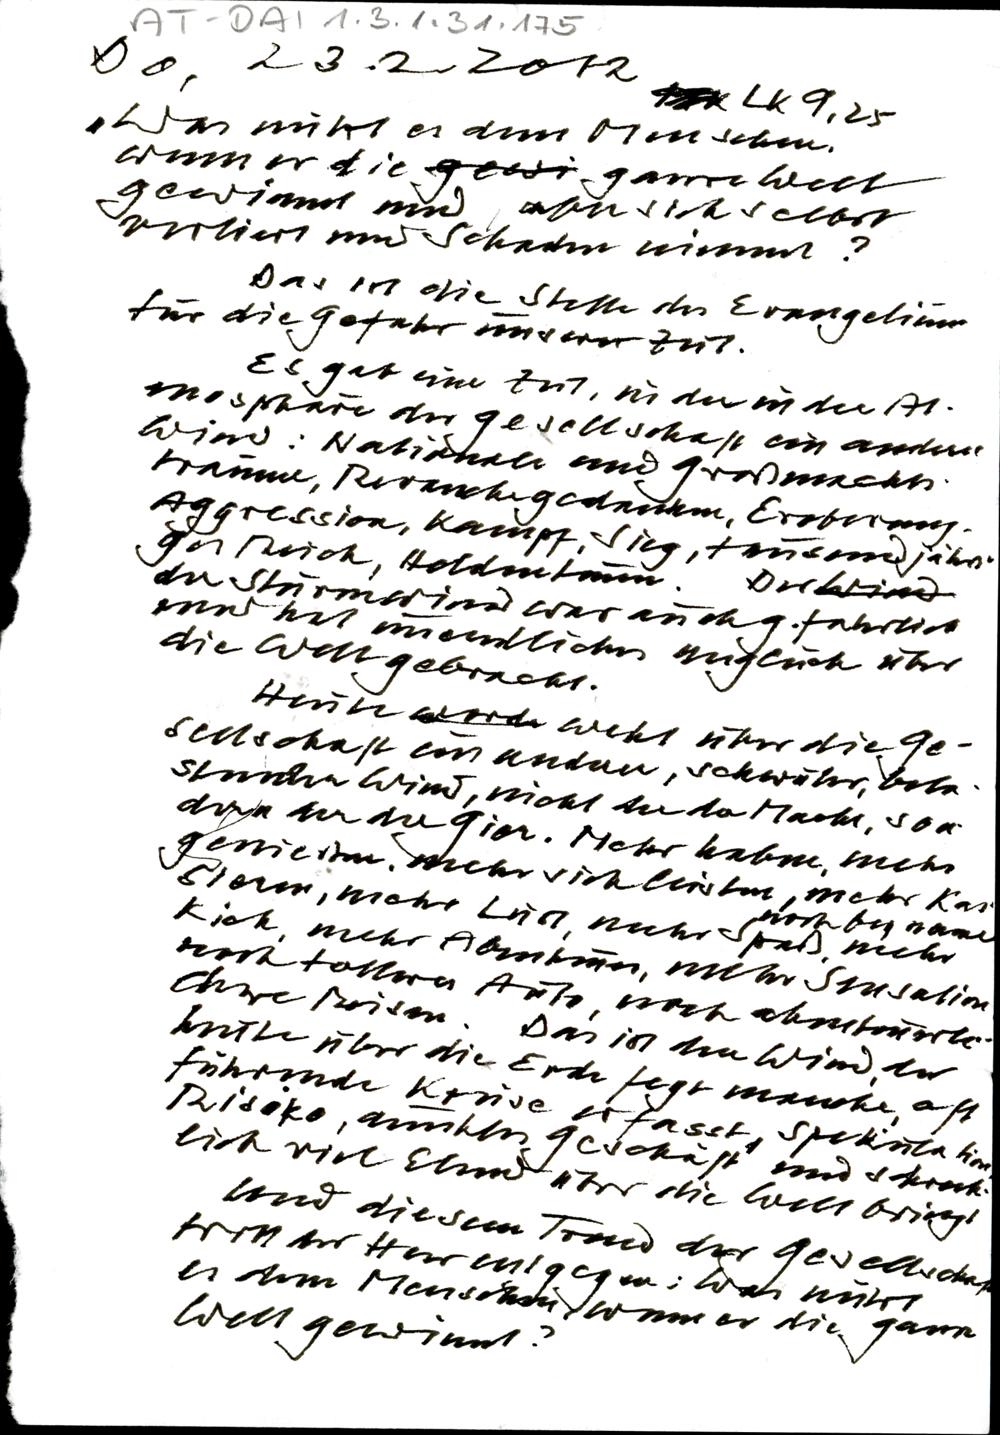 AT-DAI 1.3.1.31.175
Do, 23.2.2012
LK 9,25
"Was nützt es dem Menschen,
wenn er die ganze Welt
gewinnt und aber sich selbst
verliert und Schaden nimmt?
Das ist die Stelle des Evangelium
für die Gefahr unserer Zeit.
Es gab eine Zeit, in der in der At-
mosphäre der Gesellschaft ein anderer
Wind: Nationale und Großmachts-
träume, Revanchegedanken, Eroberung,
Aggression, Kampf, Sieg, tausendjähri-
ges Reich, Heldentum. Der
der Sturmwind war auch gefährlich
und hat unendliches Unglück über
die Welt gebracht.
Heute weht über die Ge-
sellschaft ein anderer, schwüler,
Wind, nicht der der Macht, son
dern der der Gier. Mehr haben, mehr
genießen, mehr sich leisten, mehr Kas-
sieren, mehr Lust, mehr Spaß, mehr
noch
Kick, mehr Abenteuer, mehr Sensation
noch tolleres Auto, noch abenteuerli-
chere Reisen. Das ist der Wind, der
heute über die Erde fegt manche, oft
führende Kreise erfasst, Spekulation
Risiko, dunkles Geschäft und schreck-
lich viel Elend über die Welt bringt
Und diesem Trend der Gesellschaft
tritt der Herr entgegen: Was nützt
es dem Menschen, wenn er die ganze
Welt gewinnt?